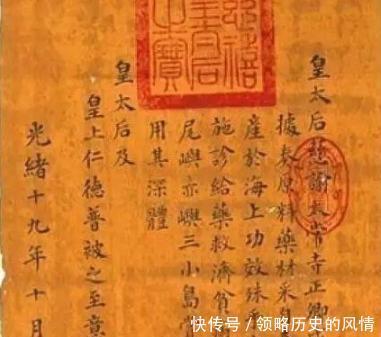 慈禧
皇太后
之寶
皇太后慈諭太常寺正卿
據奏原料藥材采
產於海上功效殊
施診給藥救濟貧
尾嶼赤嶼三小島
用其深體
皇太后及
皇上仁德普被之至意
光緒十九年十月
快传号 / 领略历史的风情